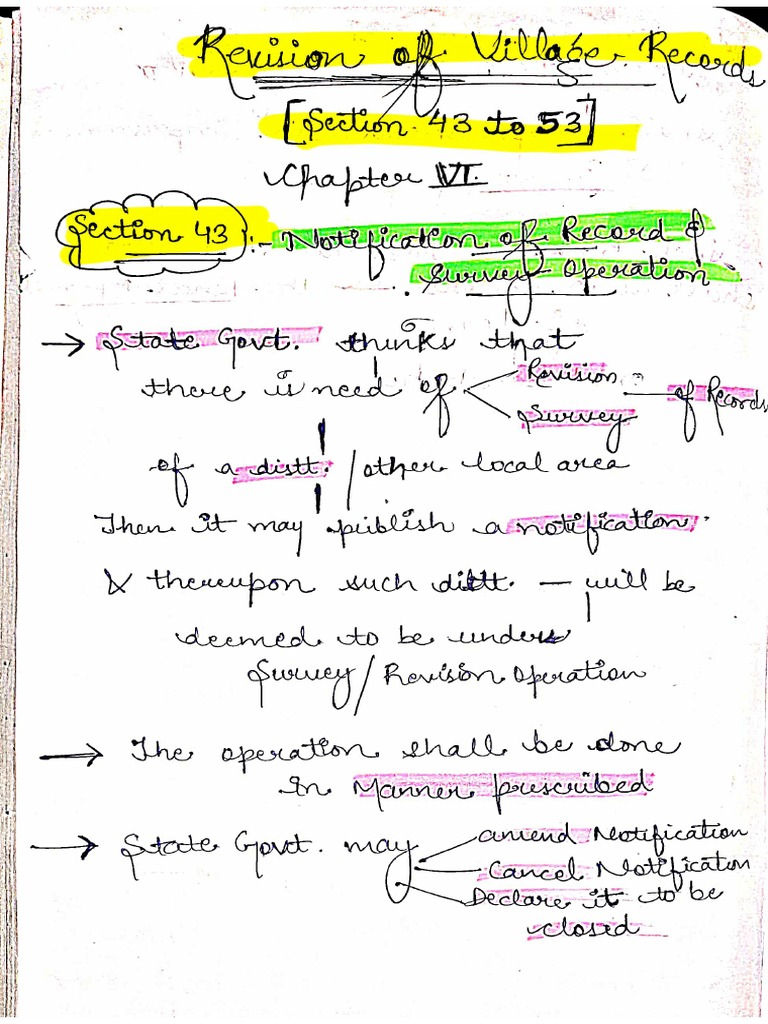 Revision of Village Records
[Section 43 to 53]
Chapter VI.
Section 43 :- Notification of Record &
Survey Operation
→ State Govt. thinks that
there is need of Revision
Survey
of Records
of a distt. / other local area
Then it may publish a notification.
& thereupon such distt. — will be
deemed to be under
Survey / Revision Operation
→ The operation shall be done
In Manner prescribed
→ State Govt. may amend Notification
Cancel Notification
Declare it to be
closed